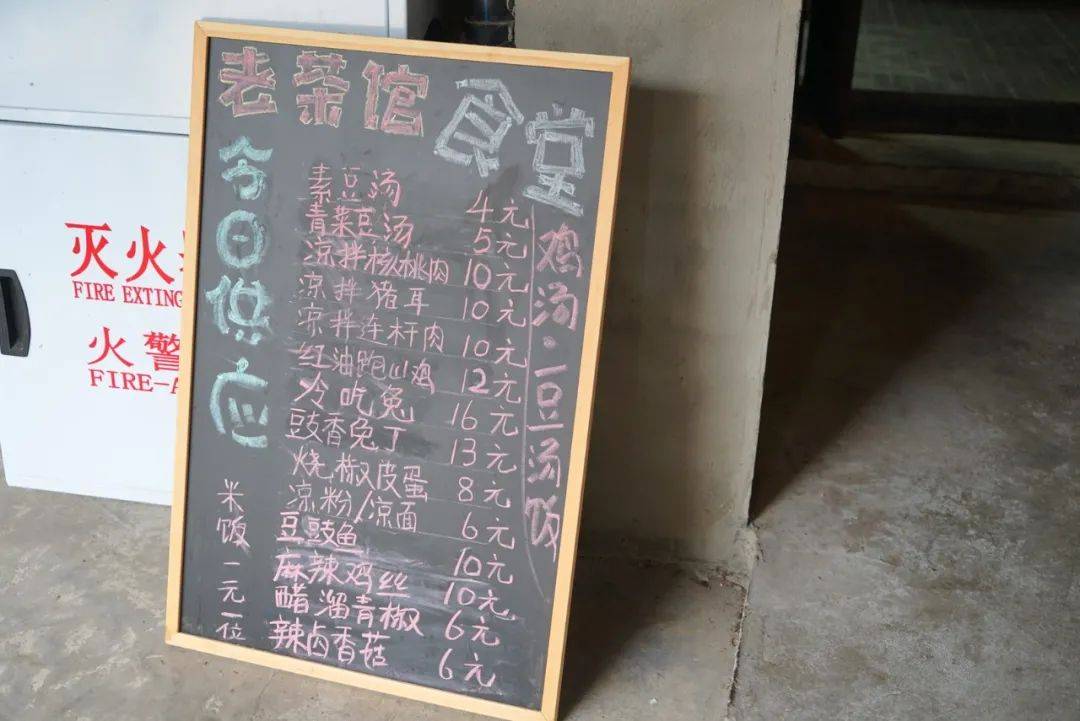 老菜馆食堂
今日供应
素豆汤 4元
青菜豆汤 5元
凉拌核桃肉 10元
凉拌猪耳 10元
凉拌连杆肉 10元
红油跑山鸡 12元
冷吃兔 16元
豉香兔丁 13元
烧椒皮蛋 8元
凉粉/凉面 6元
豆豉鱼 10元
麻辣鸡丝 10元
醋溜青椒 6元
辣卤香菇 6元
鸡汤·豆汤饭
米饭一元一位
灭火
FIRE EXTING
火警
FIRE-A